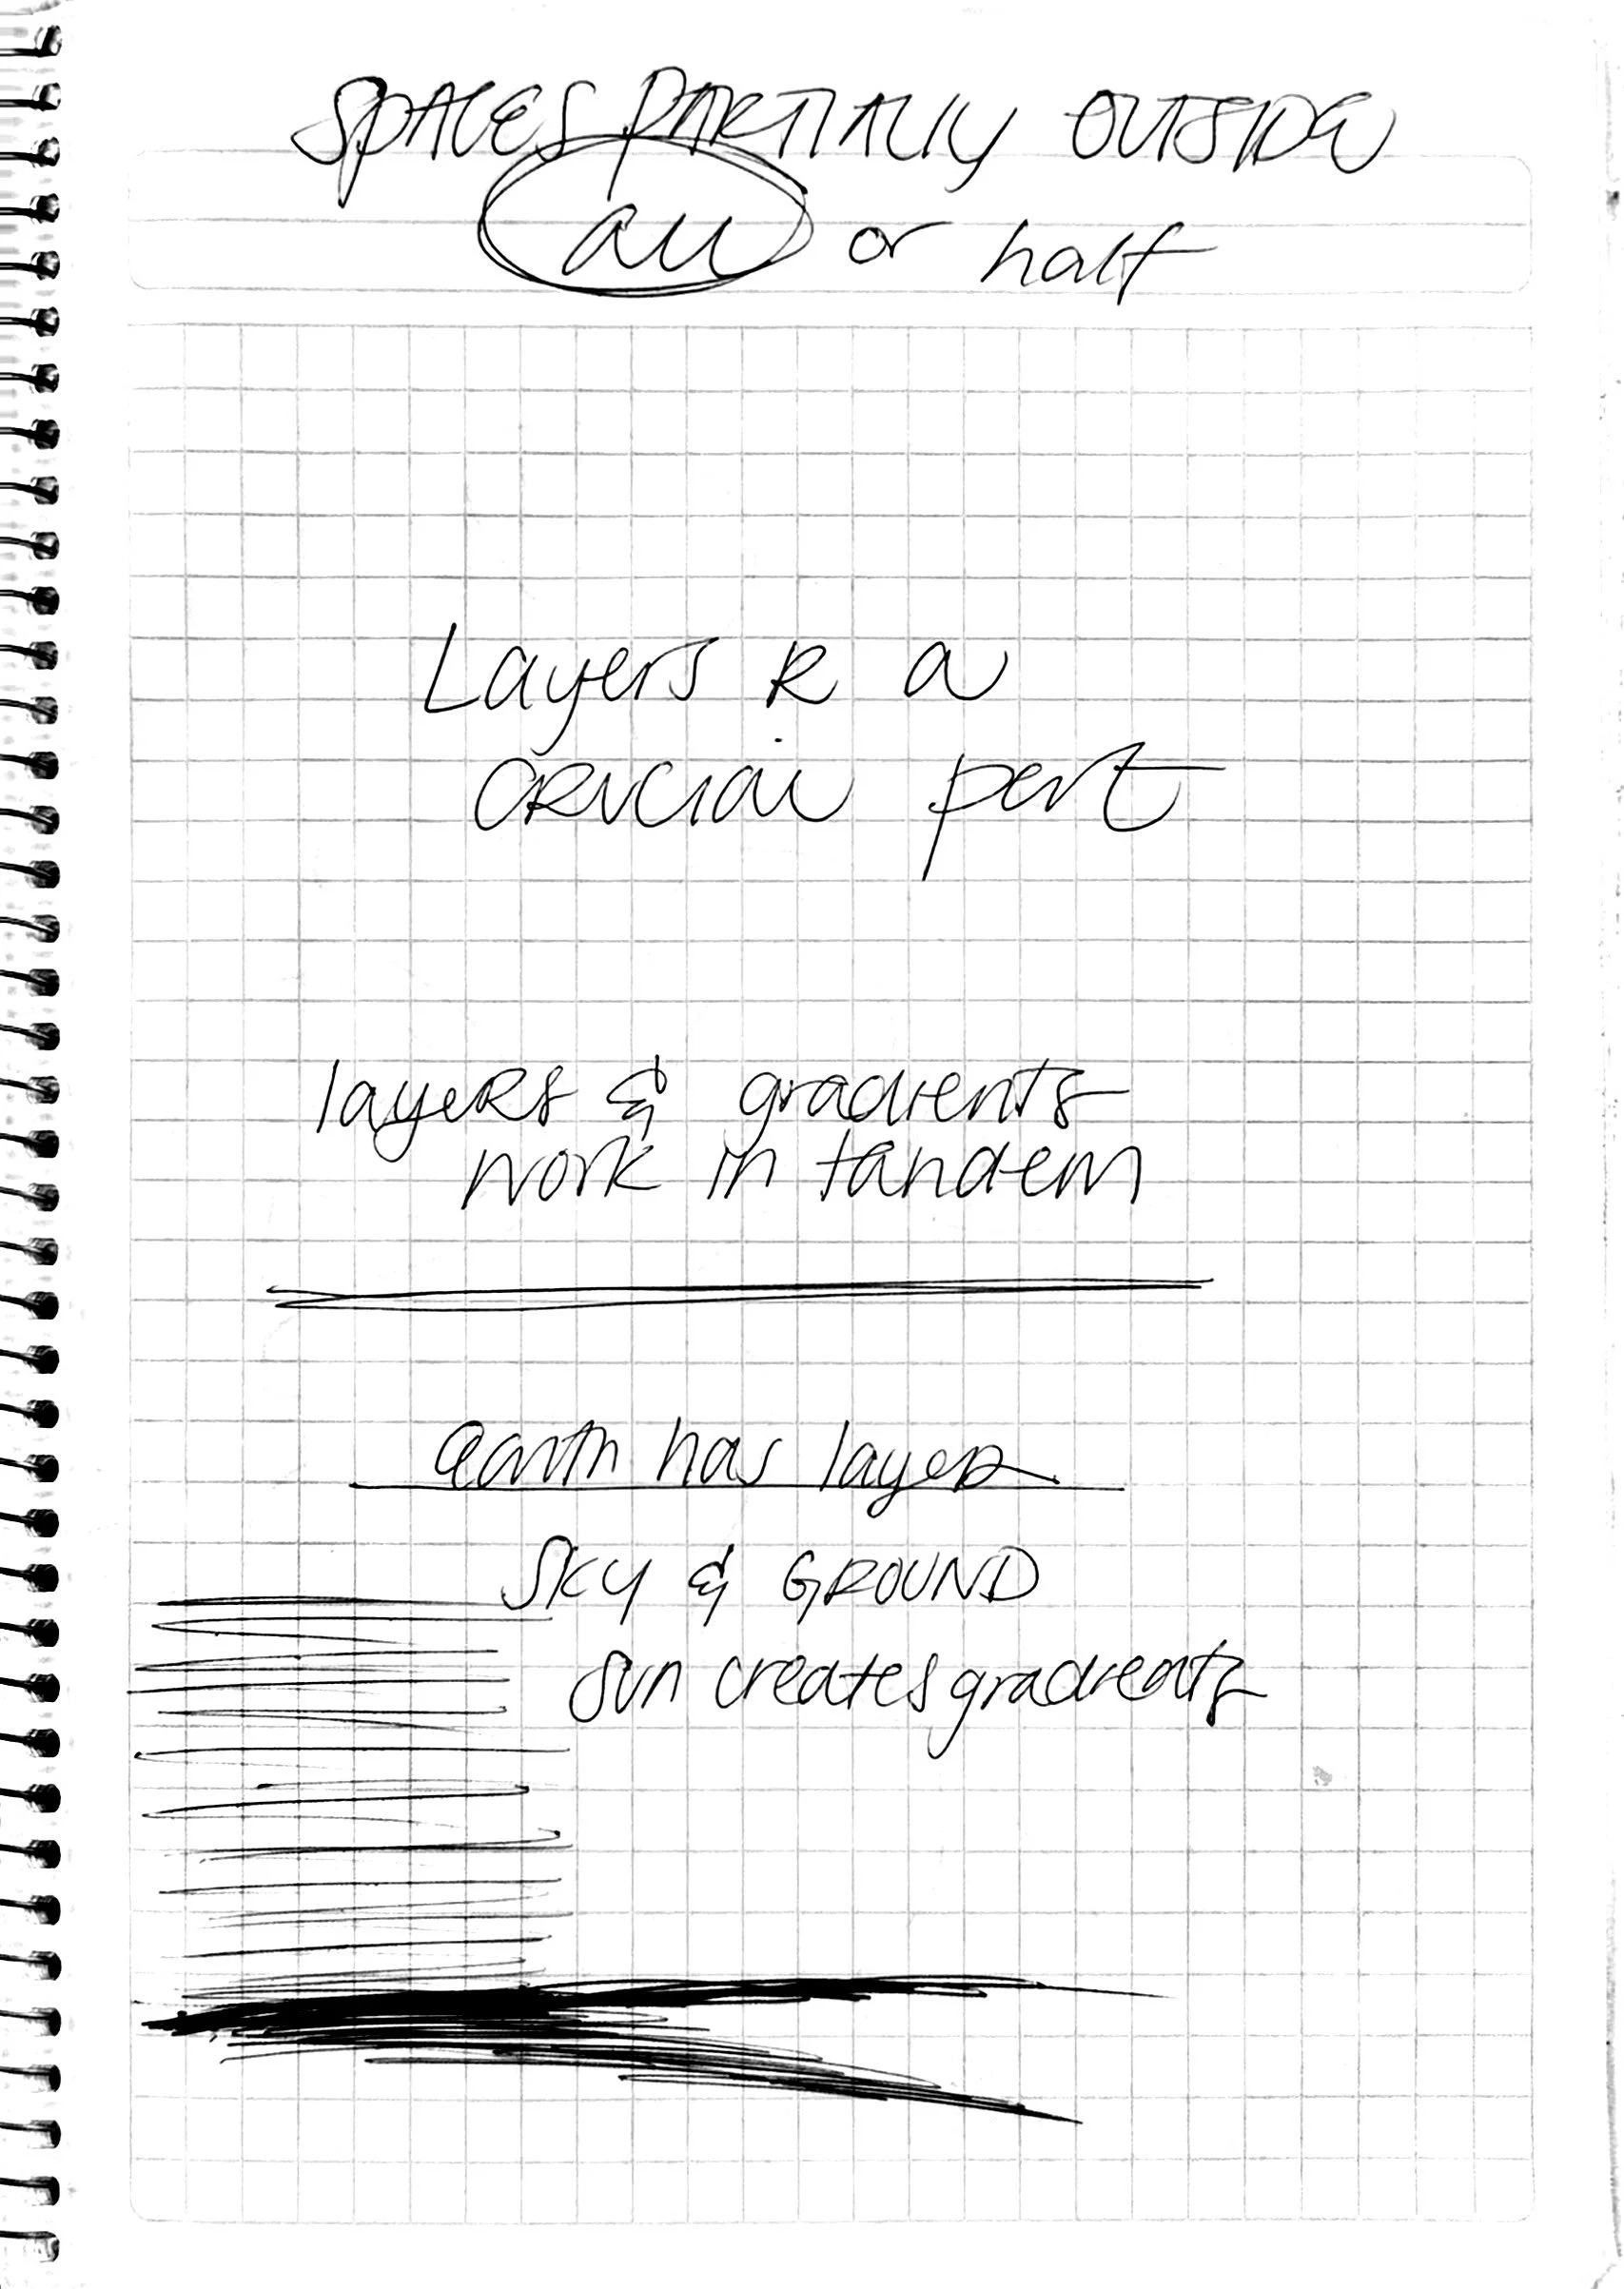 SPACES PARTIALLY OUTSIDE
all or half
Layers R a
CRUCIAL part
layers & gradients
work in tandem
earth has layers
SKY & GROUND
sun creates gradients